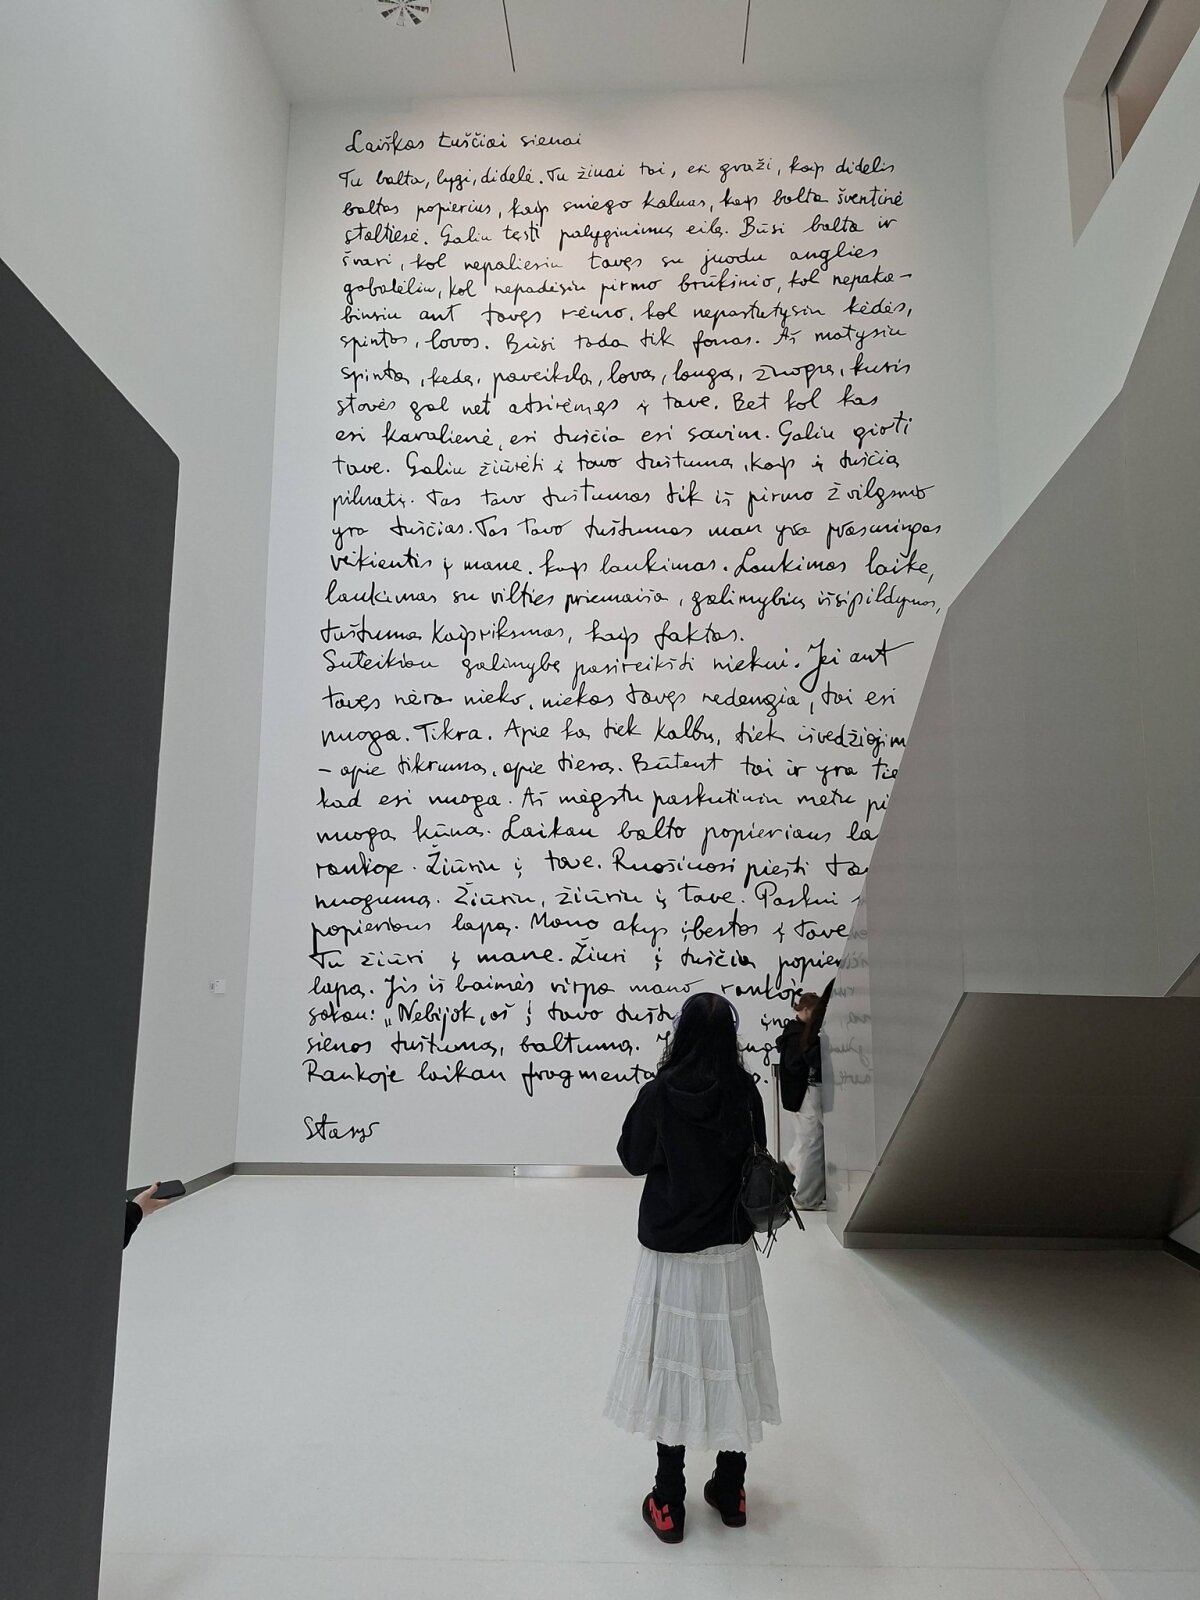 Laiškas tuščiai sienai
Tu balta, lygi, didelė. Tu žinai tai, esi graži, kaip didelis
baltas popierius, kaip sniego kalnas, kaip balta šventinė
staltiesė. Galiu tęsti palyginimų eilę. Būsi balta ir
švari, kol nepaliesiu tavęs su juodu anglies
gabalėliu, kol nepadėsiu pirmo brūkšnio, kol nepaka-
binsiu ant tavęs rėmo, kol nepastatysiu kėdės,
spintos, lovos. Būsi tada tik fonas. Aš matysiu
spintą, kėdę, paveikslą, lovą, langą, žmogų, kuris
stovės gal net atsirėmęs į tave. Bet kol kas
esi karalienė, esi tuščia esi savim. Galiu girti
tave. Galiu žiūrėti į tavo tuštumą, kaip į tuščią
pilnatį. Tas tavo tuštumas tik iš pirmo žvilgsnio
yra tuščias. Tas tavo tuštumas man yra prasmingas
veikiantis į mane, kaip laukimas. Laukimas laike,
laukimas su vilties priemaiša, galimybių išsipildymas,
tuštuma kaip riksmas, kaip faktas.
Suteikiau galimybę pasireikšti niekui. Jei ant
tavęs nėra nieko, niekas tavęs nedengia, tai esi
nuoga. Tikra. Apie ką tiek kalbų, tiek išvedžiojim
– apie tikrumą, apie tiesą. Būtent tai ir yra tie
kad esi nuoga. Aš mėgstu paskutiniu metu pi
nuogą kūną. Laikau balto popieriaus la
rankoje. Žiūriu į tave. Ruošiuosi piešti ta
nuogumą. Žiūriu, žiūriu į tave. Paskui
popieriaus lapą. Mano akys įbestos į tave
Tu žiūri į mane. Žiūri į tuščią popier
lapą. Jis iš baimės virpa mano rankoje
sakau: „Nebijok, aš į tavo
sienos tuštumą, baltumą.
Rankoje laikau
Stasys